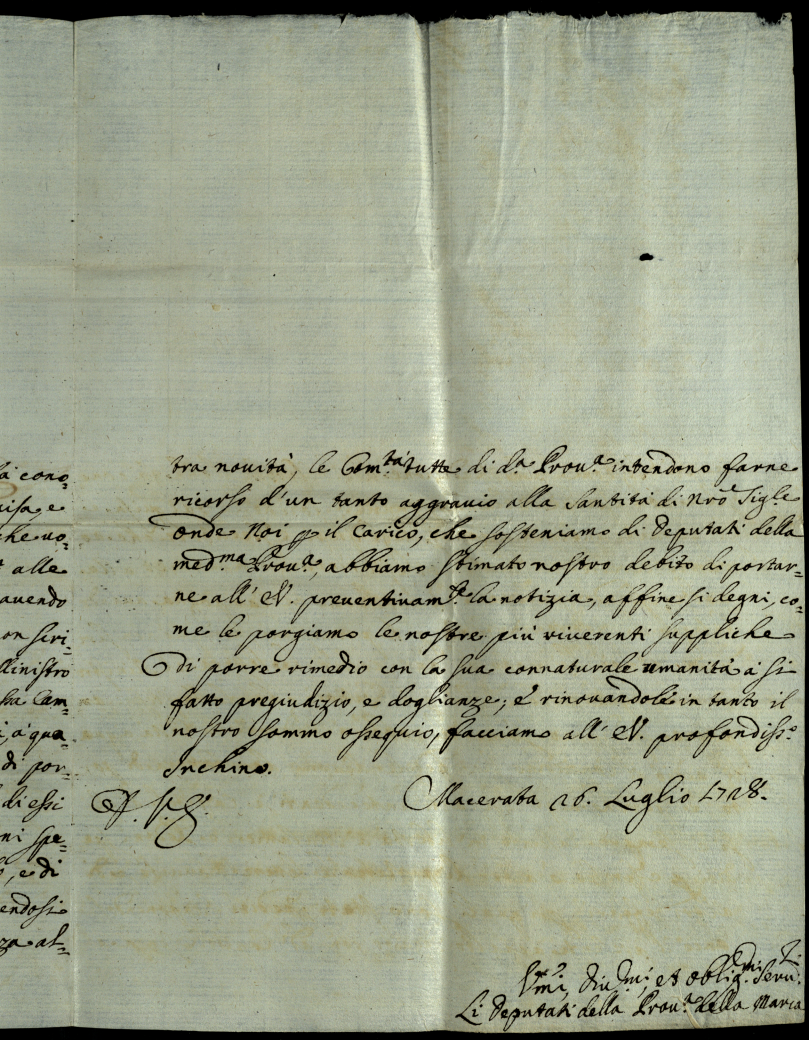 là cono=
uisa, e
che uo=
alle
auendo
on scri=
Ministro
sta Cam=
à qua=
di por=
di essi
ni spe=
, e di
endosi
za al=
tra nouità, le Com.tà tutte di d.a Prou.a intendono farne
ricorso d'un tanto aggrauio alla Santità di Nrõ Sig.re
onde Noi p il carico, che sosteniamo di Deputati della
med.ma Prou.a, abbiamo stimato nostro debito di portar=
ne all' E.V. preuentiuam.te la notizia, affine si degni, co=
me le porgiamo le nostre più riuerenti suppliche
di porre rimedio con la sua connaturale umanità à sì
fatto pregiudizio, e doglianze; e rinouandole in tanto il
nostro sommo ossequio, facciamo all' E.V. profondiss.o
Inchino.
Macerata 26. Luglio 1728.
et oblig.mi Seru.ri
Li Deputati della Prou.a della Marca